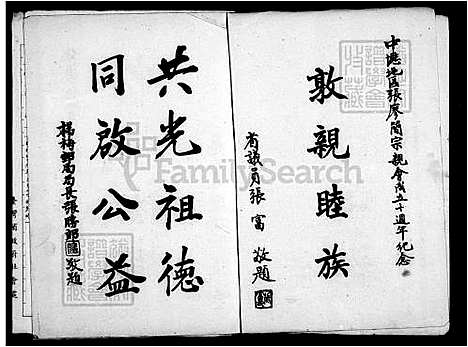 中壢地區張廖簡宗親會成立十週年紀念
敦親睦族
省議員張富敬題
共光祖德
同啟公益
楊梅郵局局長張勝郎敬題
FamilySearch